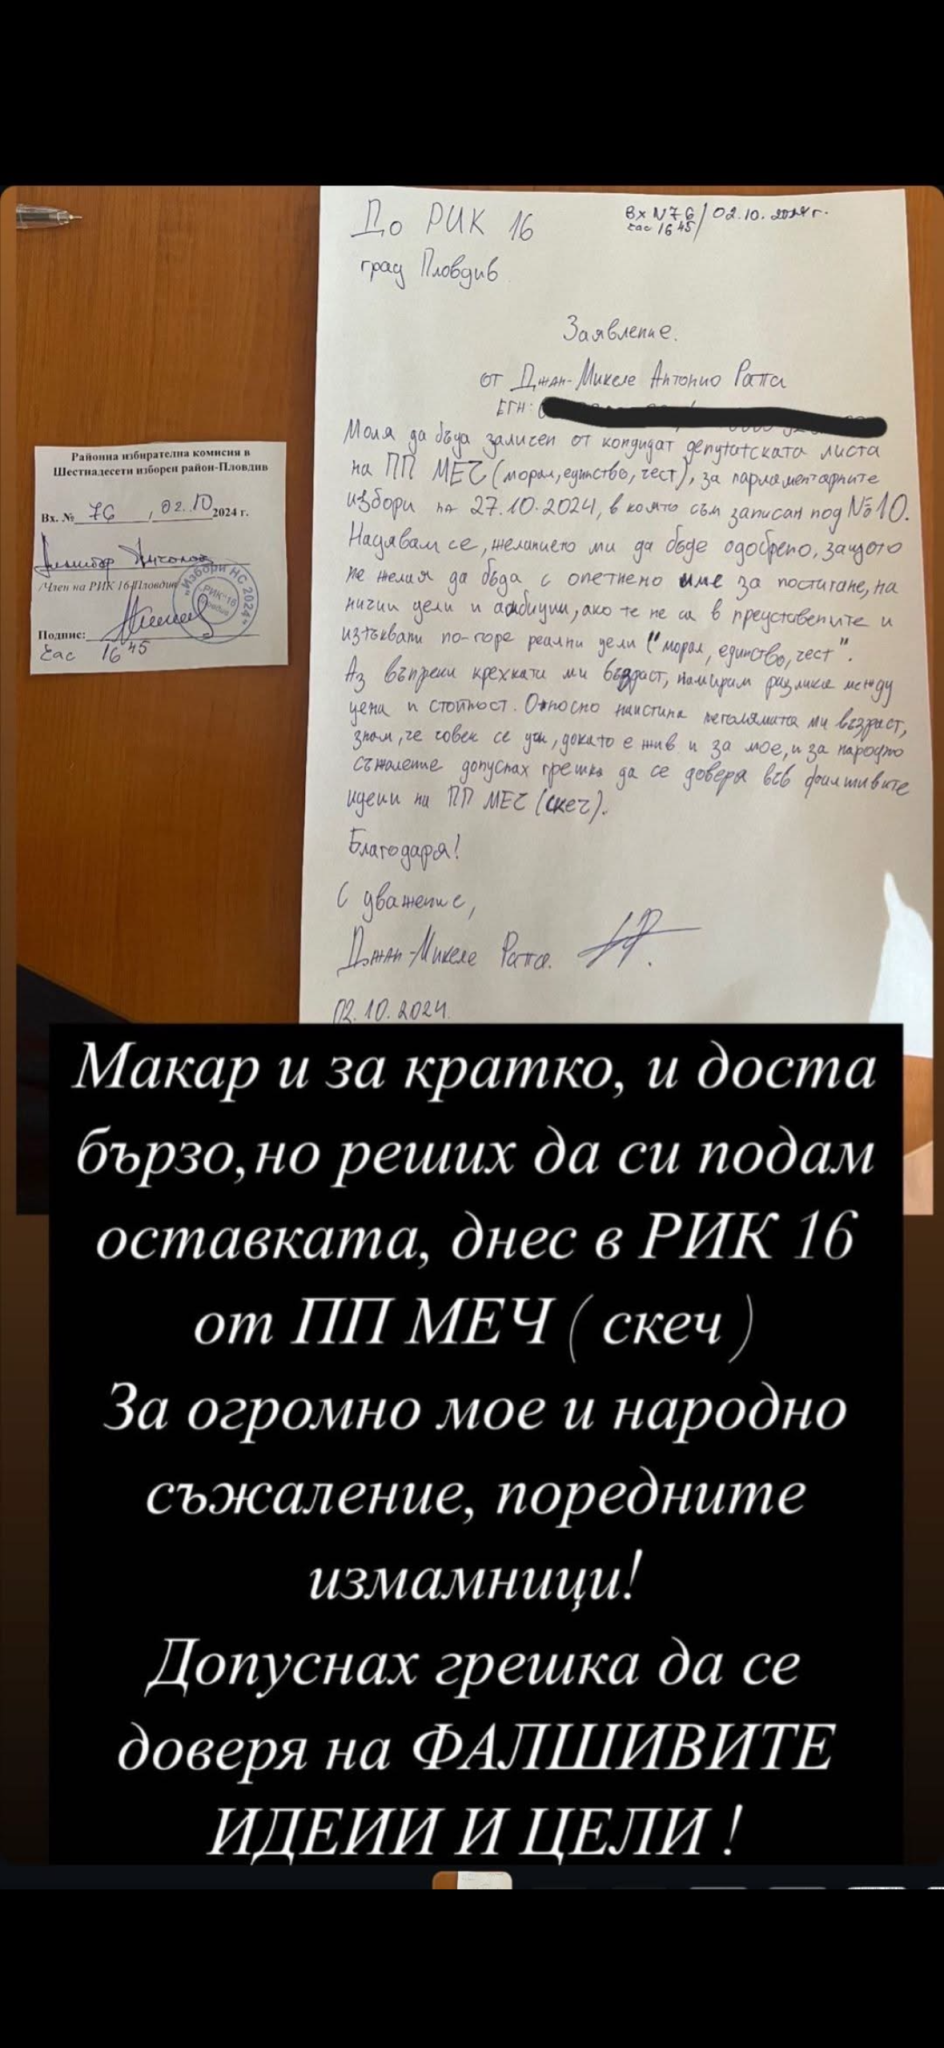 До РИК 16
град Пловдив
Вх N76/02.10.2024г.
час 16 45
Заявление.
от Джан-Микеле Антонио Рапа
ЕГН:
Моля да бъда заличен от кондидат депутатската листа
на ПП МЕЧ (морал, единство, чест), за парламентарните
избори на 27.10.2024, в която съм записан под №10.
Надявам се, желанието ми да бъде одобрено, защото
не желая да бъда с опетнено име за постигане, на
ничии цели и амбиции, ако те не са в представените и
изтъквани по-горе реални цели "морал, единство, чест".
Аз въпреки крехката ми възраст, намирам разлика между
цена и стойност. Относно наистина неголямата ми възраст,
знам, че човек се учи, докато е жив и за мое, и за народно
съжаление допуснах грешка да се доверя във фалшивите
идеии на ПП МЕЧ (скеч).
Благодаря!
С уважение,
Джан-Микеле Рапа.
02.10.2024
Районна избирателна комисия в
Шестнадесети изборен район-Пловдив
Вх. № 76 , 02.10 2024 г.
/Член на РИК 16-Пловдив
"Избори НС 2024"
РИК-16
Подпис:
Час 16 45
Макар и за кратко, и доста
бързо,но реших да си подам
оставката, днес в РИК 16
от ПП МЕЧ ( скеч )
За огромно мое и народно
съжаление, поредните
измамници!
Допуснах грешка да се
доверя на ФАЛШИВИТЕ
ИДЕИИ И ЦЕЛИ !